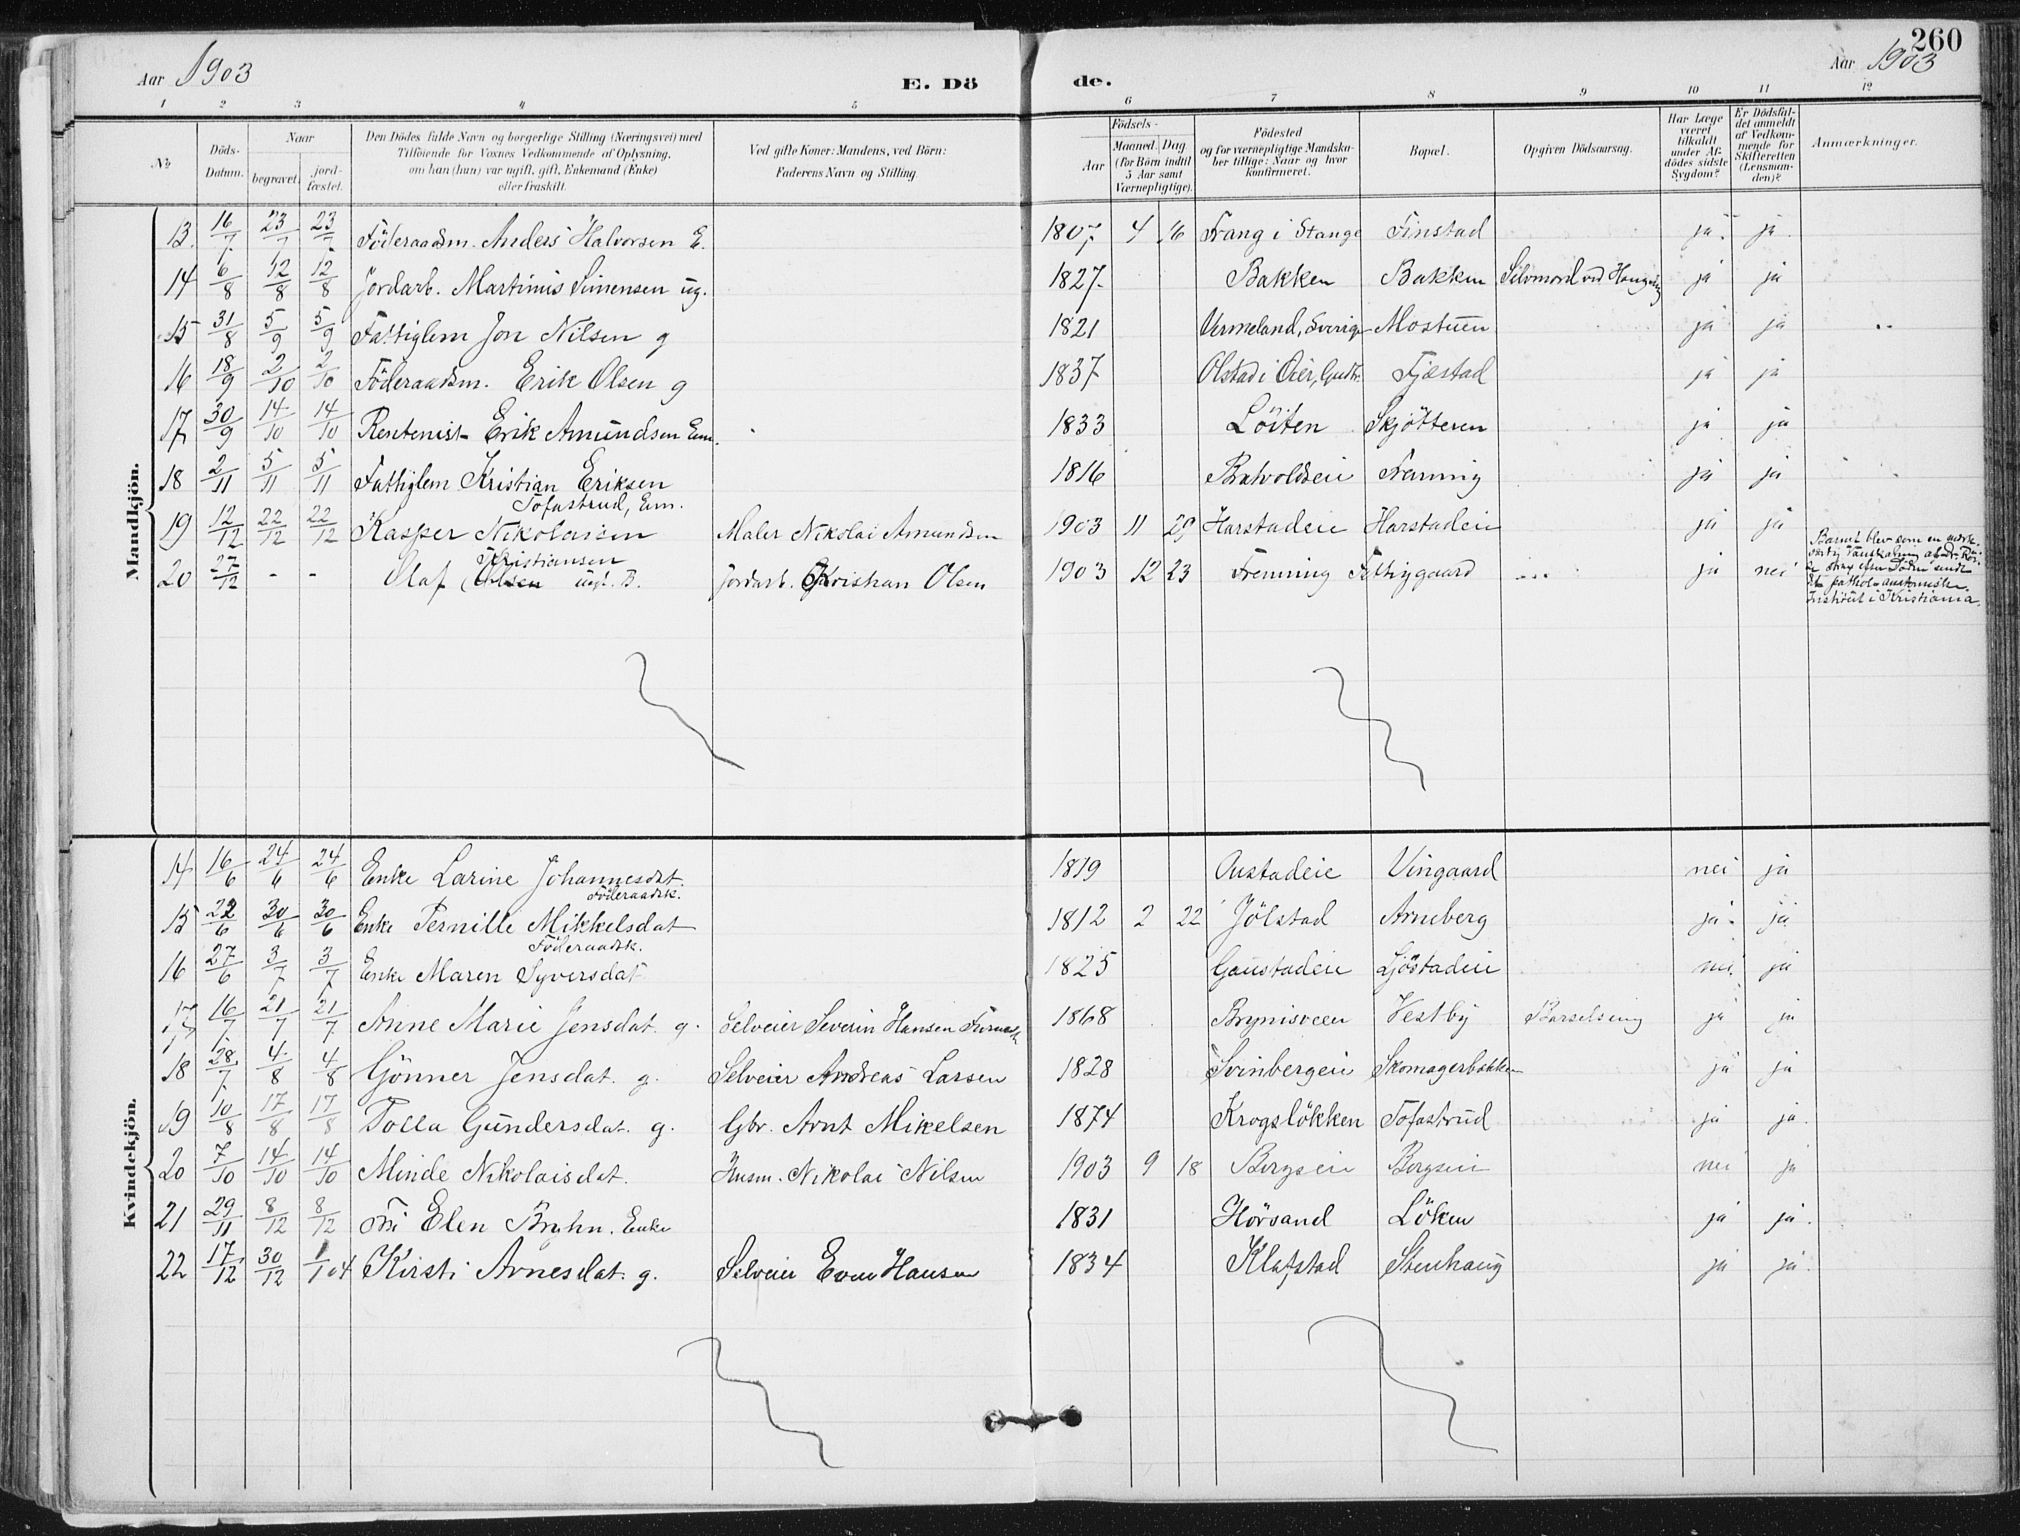 260
Aar 1903 E. Dö de. Aar 1903
1 2 3 4 5 6 7 8 9 10 11 12
No Döds-Datum. Naar begravet. jordfæstet. Den Dödes fulde Navn og borgerlige Stilling (Næringsvei) med Tilföiende for Voxnes Vedkommende af Oplysning, om han (hun) var ugift, gift, Enkemand (Enke) eller fraskilt. Ved gifte Koner: Mandens, ved Börn: Faderens Navn og Stilling. Födsels- Aar Maaned. Dag. (for Börn indtil 5 Aar samt Værnepligtige). Födested og for værnepligtige Mandskaber tillige: Naar og hvor konfirmeret. Bopæl. Opgiven Dödsaarsag. Har Læge været tilkaldt under Afdödes sidste Sygdom? Er Dödsfaldet anmeldt af Vedkommende for Skifteretten (Lensmanden)? Anmærkninger.
Mandkjön.
13. 16/7 23/7 23/7 Föderaadsm. Anders Halvorsen E. 1807 4 16 Frang i Stange Finstad ja ja
14 6/8 12/8 12/8 Jordarb. Martinus Simensen ug. 1827 Bakken Bakken Selvmord ved Hængning ja ja
15 31/8 5/9 5/9 Fattiglem Jon Nilsen g 1821 Vermeland, Sverige Mostuen ja ja
16 18/9 2/10 2/10 Föderaadsm. Erik Olsen g 1837 Olstad i Öier, Gudbr. Fjæstad ja ja
17 30/9 14/10 14/10 Rentenist Erik Amundsen Em. 1833 Löiten Skjötteren ja ja
18 2/11 5/11 5/11 Fattiglem Kristian Eriksen Tofastrud, Em. 1816 Fremming ja ja
19 12/12 22/12 22/12 Kasper Nikolaisen Maler Nikolai Amundsen 1903 11 29 Harstadeie Harstadeie ja ja
20 27/12 - - Olaf Olsen Kristiansen ugt. B. Jordarb. Kristian Olsen 1903 12 23 Fremming Fattiggaard ja nei Barnet blev som en
sendt
Institut i Kristiania.
Kvindekjön.
14 16/6 24/6 24/6 Enke Larine Johannesdat. Föderaadsk. 1819 Austadeie Vingaard nei ja
15 22/6 30/6 30/6 Enke Pernille Mikkelsdat Föderaadsk. 1812 2 22 Jölstad Arneberg ja ja
16 27/6 3/7 3/7 Enke Maren Syversdat 1825 Gaustadeie Ljöstadeie nei ja
17 16/7 21/7 21/7 Anne Marie Jensdat. g. Selveier Severin Hansen 1868 Brynisveen Vestby Barselseng ja ja
18 28/7 4/8 4/8 Gönner Jensdat. g. Selveier Andreas Larsen 1828 Svinbergeie Skomagerbakken ja ja
19 10/8 17/8 17/8 Polla Gundersdat. g. Gbr. Arnt Mikelsen 1874 Krogslökken Tofastrud ja ja.
20 7/10 14/10 14/10 Minde Nikolaisdat. Husm. Nikolai Nilsen 1903 9 18 Bergseie Bergseie nei ja
21 29/11 8/12 8/12 Fru Elen Bryhn. Enke 1831 Hörsand Löken ja ja.
22 17/12 30/12 1/1 04 Kirsti Arnesdat. g. Selveier Even Hansen 1834 Klafstad Stenhaug ja ja.